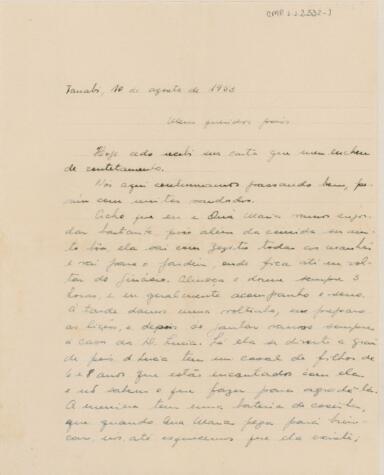 CMP 1.2.2332-1
Tanabi, 10 de agosto de 1953
Meus queridos pais
Hoje cedo recebi sua carta que me encheu
de contentamento.
Nós aqui continuamos passando bem, po
rém com muitas saudades.
Acho que eu e Ana Maria vamos engor
dar bastante, pois além da comida ser mui
to boa, ela sai com Zezito todas as manhãs
e vai para o jardim, onde fica até eu vol
tar do Ginásio. Almoça e dorme sempre 3
horas, e eu geralmente acompanho o sono.
À tarde damos uma voltinha, eu preparo
as lições, e depois do jantar vamos sempre
à casa da D. Lucia. Lá ela se diverte a gran
de pois d. Lucia tem um casal de filhos de
6 e 8 anos que estão encantados com ela
e não sabem o que fazer para agradá-la.
A menina tem uma bateria de cozinha,
que quando Ana Maria pega para brin
car, nós até esquecemos que ela existe;